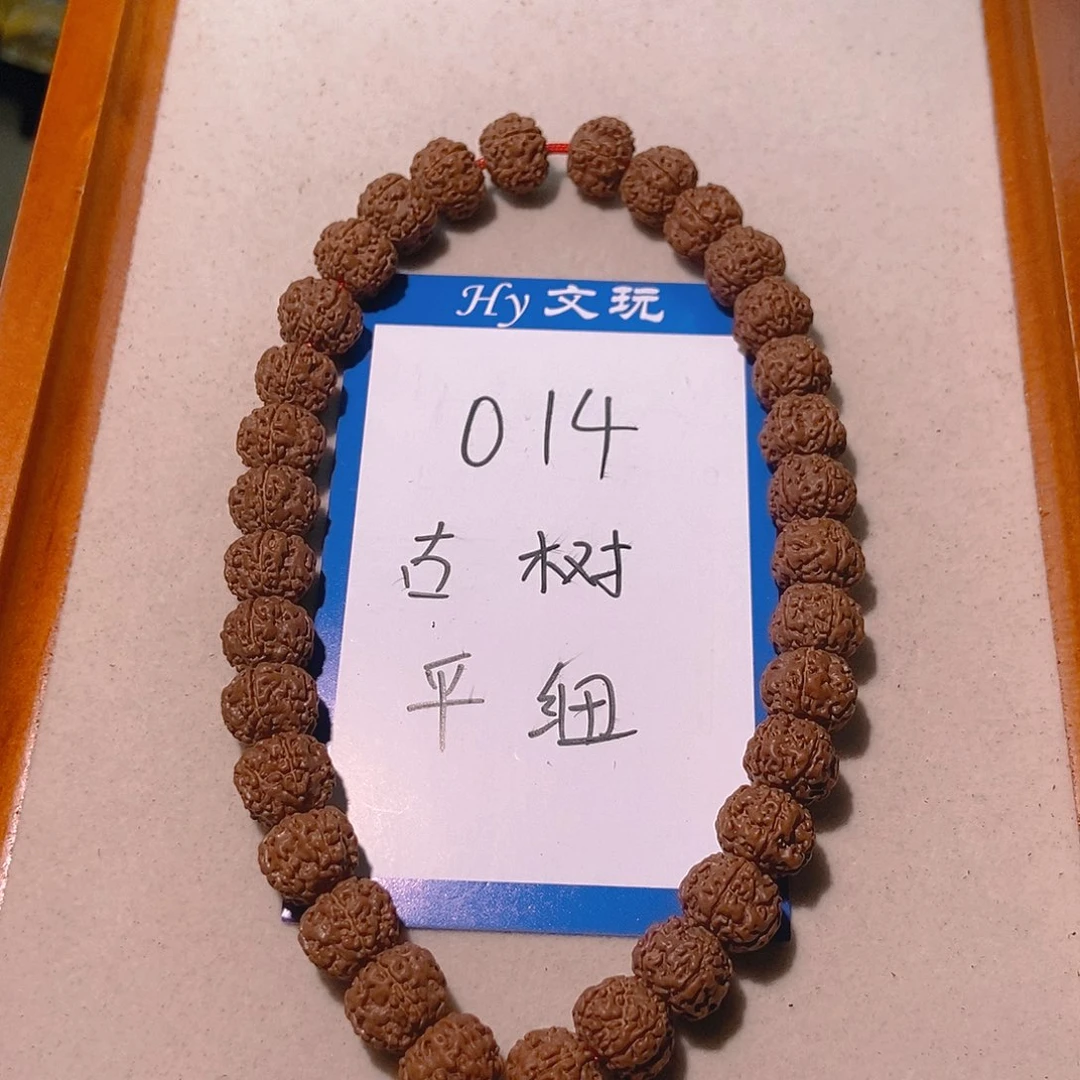 Hy文玩
014
古树
平细